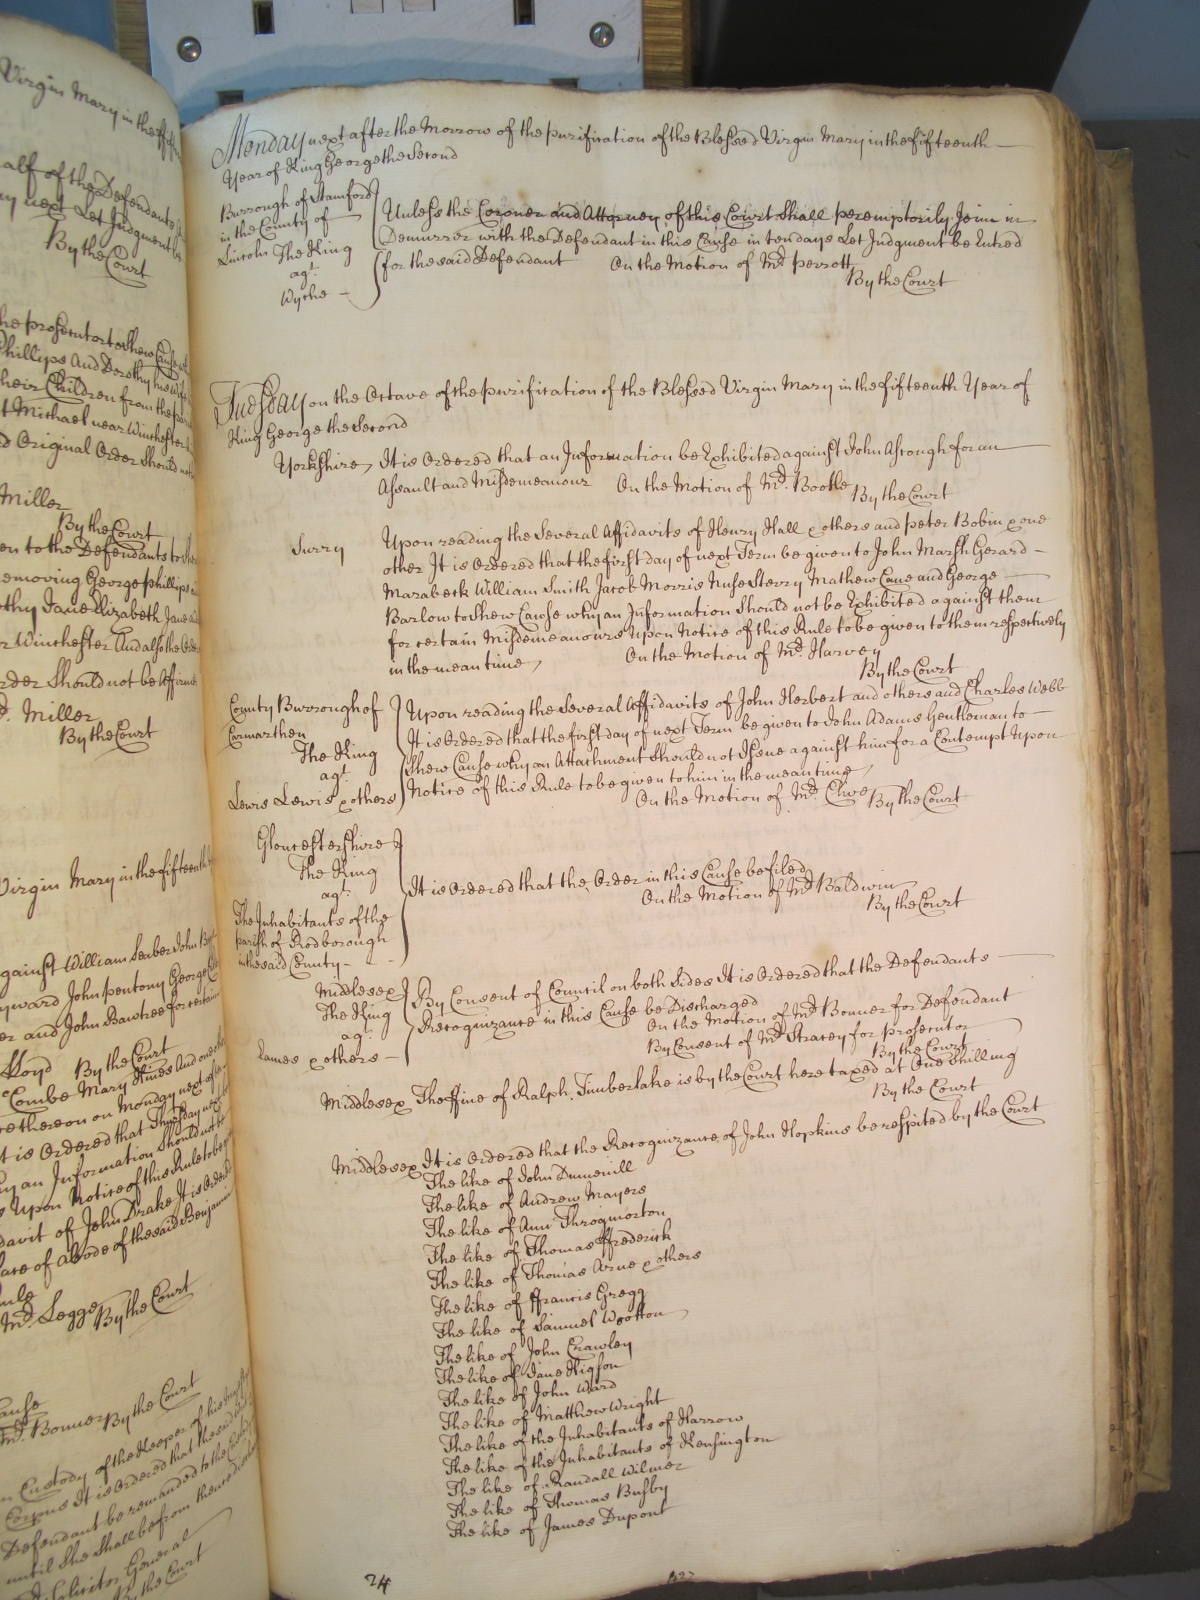 Virgin Mary in the
alf of the Defendants
ay next Let Judgment be
By the Court
he prosecutor to Shew Cause
Phillips And Dorothy his wife
heir Children from the
t Michael near Winchester
d Original Order Should not
Miller
By the Court
en to the Defendants to
emoving George phillips
othy Jane Elizabeth Jane and
r Winchester And also the Order
rder Should not be Affirmed
d. Miller
By the Court
Virgin Mary in the fifteenth
against William Seaber John
yward John pentony George
er and John Bawtree for certain
Lloyd By the Court
Combe Mary Hines And one other
ce thereon on Monday next
t is Ordered that Thursday next
ny an Information Should not be
s Upon Notice of this Rule to be
davit of John Drake It is Ordered
lace of Abode of the said Benjamin
Rule
Md. Legge By the Court
Cause
Md. Bonner By the Court
n Custody of the Keeper of his
Corpus It is Ordered that the said
Defendant be remanded to the Custody
until She Shall be from thence
Solicitor General
By the Court
Monday next after the Morrow of the purification of the Blessed Virgin Mary in the fifteenth
Year of King George the Second
Burrough of Stamford
in the County of
Lincoln The King
agt.
Wyche
Unless the Coroner and Attorney of this Court Shall peremptorily Joim in
Demurrer with the Defendant in this Cause in ten days Let Judgment be Entred
for the said Defendant On the Motion of Md. perrott
By the Court
Tuesday on the Octave of the purification of the Blessed Virgin Mary in the fifteenth Year of
King George the Second
Yorkshire It is Ordered that an Information be Exhibited against John Ascough for an
Assault and Misdemeanour On the Motion of Md. Bootle
By the Court
Surry Upon reading the Several Affidavits of Henry Hall & others and peter Bobin & one
other It is Ordered that the first day of next Term be given to John Marsh Gerard
Marabeck William Smith Jacob Morris Nuse Sterry Mathew Cane and George
Barlow to Shew Cause why an Information Should not be Exhibited against them
for certain Misdemeanours Upon Notice of this Rule to be given to them respectively
in the mean time On the Motion of Md. Harvey
By the Court
County Burrough of
Carmarthen
The King
agt.
Lewis Lewis & others
Upon reading the Several Affidavits of John Herbert and others and Charles Webb
It is Ordered that the first day of next Term be given to John Adams Gentleman to
Shew Cause why an Attachment Should not Issue against him for a Contempt Upon
Notice of this Rule to be given to him in the mean time
On the Motion of Md. Clive By the Court
Gloucestershire
The King
agt.
The Inhabitants of the
parish of Rodborough
in the said County
It is Ordered that the Order in this Cause be filed
On the Motion of Md. Baldwin
By the Court
Middlesex
The King
agt.
Eames & others
By Consent of Council on both Sides It is Ordered that the Defendants
Recognizance in this Cause be Discharged
On the Motion of Md. Bonner for Defendant
By Consent of Md. Stracey for prosecutor
By the Court
Middlesex The ffine of Ralph Timberlake is by the Court here taxed at One Shilling
By the Court
Middlesex It is Ordered that the Recognizance of John Hopkins be respited by the Court
The like of John Dunnill
The like of Andrew Mayers
The like of Ann Throgmorton
The like of Thomas ffrederick
The like of Thomas Arne & others
The like of ffrancis Gregg
The like of Samuel Wootton
The like of John Crawley
The like of Jane Higson
The like of John Ward
The like of Matthew Wright
The like of the Inhabitants of Harrow
The like of the Inhabitants of Kensington
The like of Randall Wilmer
The like of Thomas Busby
The like of James Dupont
24